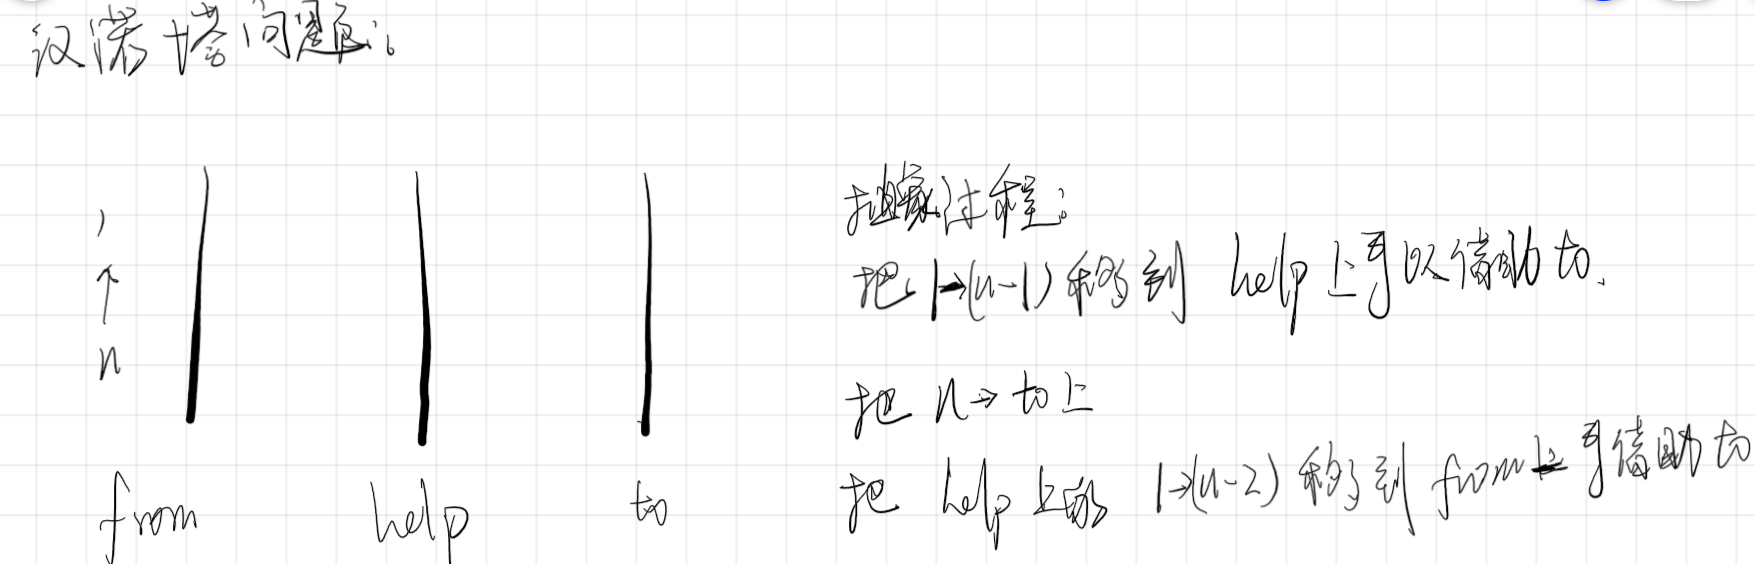 汉诺塔问题:
1
↑
n
from help to
抽象过程:
把 1→(n-1) 移到 help 上可以借助 to.
把 n→to上
把 help 上的 1→(n-2) 移到 from上 可借助 to